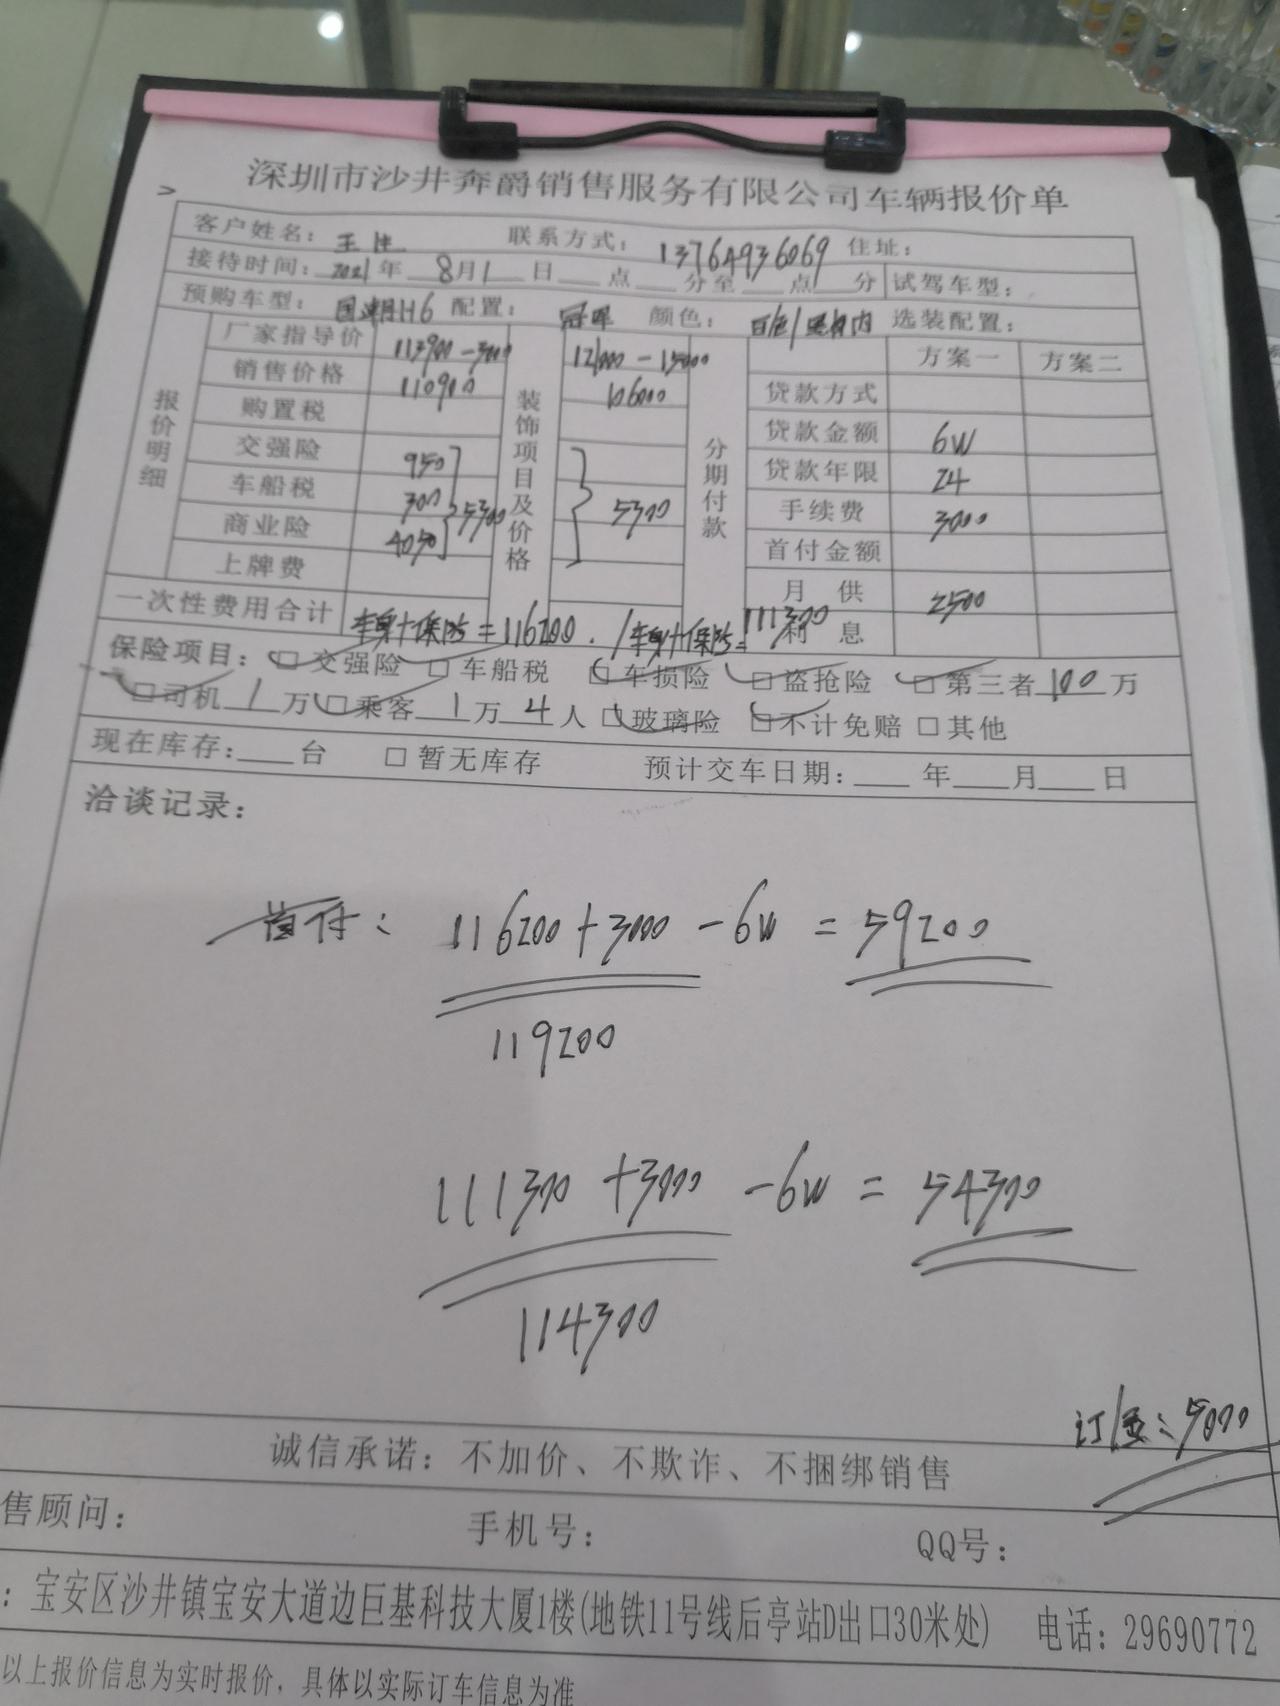 深圳市沙井奔爵销售服务有限公司车辆报价单
客户姓名: 王 联系方式: 13764936069 住址:
接待时间: 2021年 8月1日 点 分至 点 分 试驾车型:
预购车型: 国潮H6 配置: 冠军 颜色: 白色/黑内 选装配置:
报价明细 装饰项目及价格 分期付款
厂家指导价 113900-3000 12000-15000 方案一 方案二
销售价格 110900 106000 贷款方式
购置税 贷款金额 6W
交强险 950 贷款年限 24
车船税 300 5300 5300 手续费 3000
商业险 4050 首付金额
上牌费 月供 2500
一次性费用合计 车身+保险=116200. /车身+保险=111300 利息
保险项目: □交强险 □车船税 □车损险 □盗抢险 □第三者100万
□司机1万 □乘客1万4人 □玻璃险 □不计免赔 □其他
现在库存: 台 □暂无库存 预计交车日期: 年 月 日
洽谈记录:
首付: 116200+3000-6W=59200
119200
111300+3000-6W=54300
114300
订金:5000
诚信承诺: 不加价、不欺诈、不捆绑销售
售顾问: 手机号: QQ号:
: 宝安区沙井镇宝安大道边巨基科技大厦1楼(地铁11号线后亭站D出口30米处) 电话: 29690772
以上报价信息为实时报价, 具体以实际订车信息为准